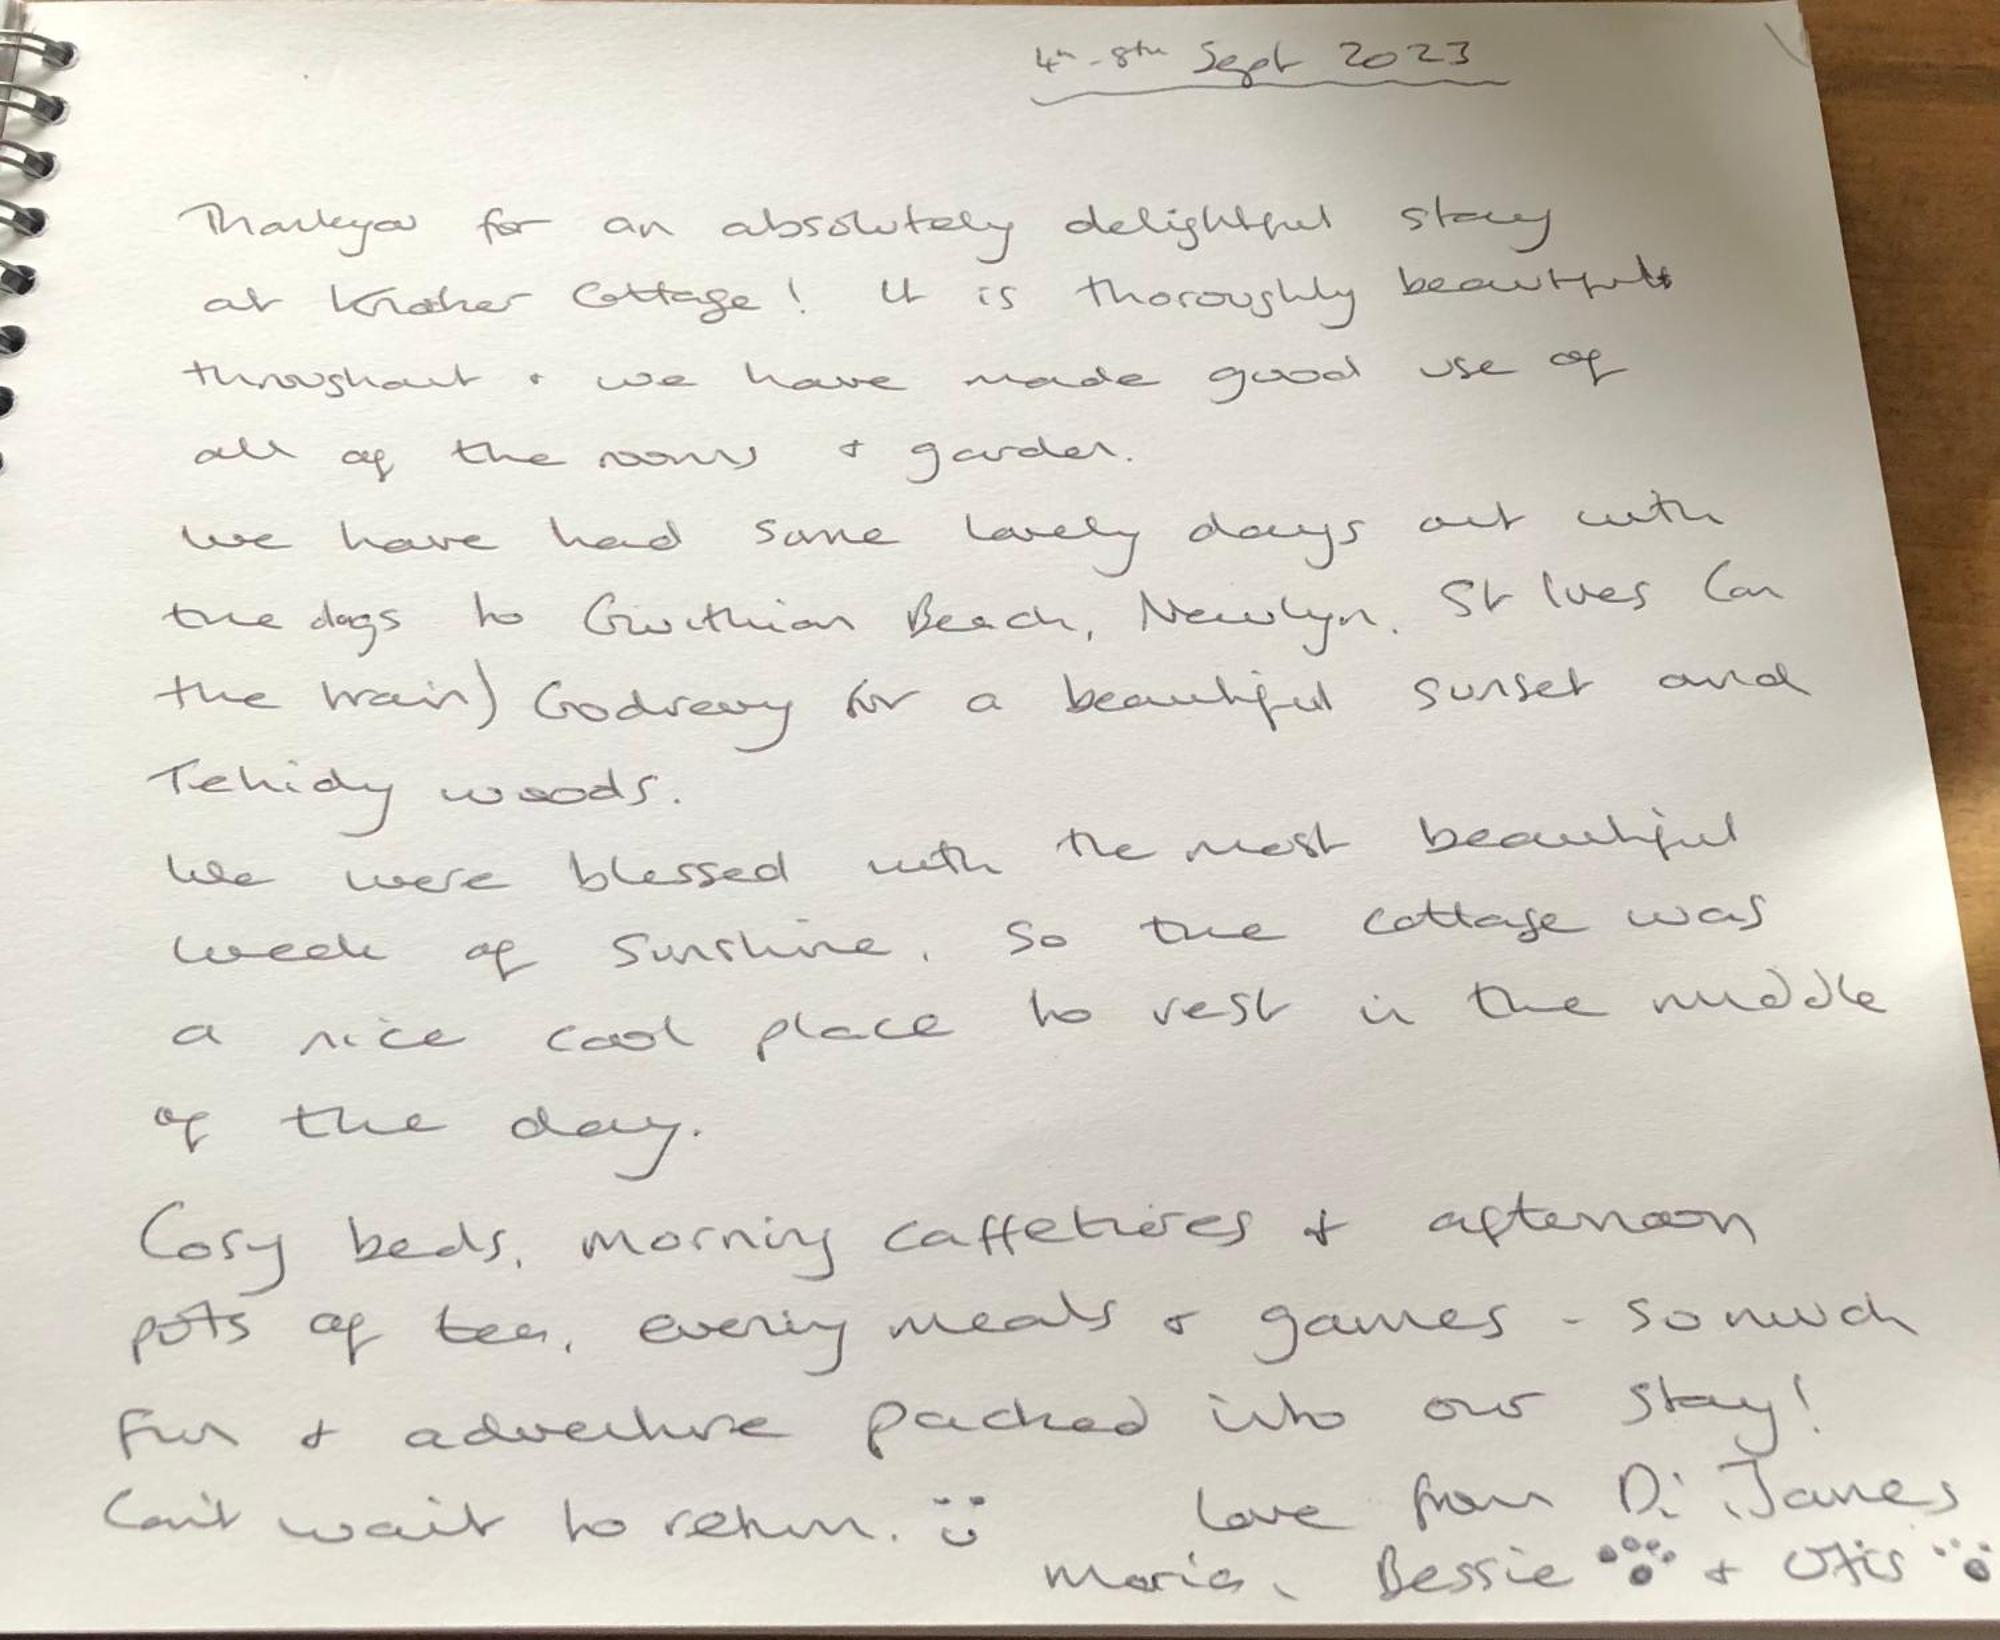 4th - 8th Sept 2023
Thankyou for an absolutely delightful stay
at Cottage! It is thoroughly beautiful
throughout + we have made good use of
all of the rooms + garden.
We have had some lovely days out with
the dogs to Gwithian Beach, Newlyn, St Ives (on
the train) Godrevy for a beautiful sunset and
Tehidy woods.
We were blessed with the most beautiful
week of sunshine, so the cottage was
a nice cool place to rest in the middle
of the day.
Cosy beds, morning caffetieres + afternoon
pots of tea, evening meals + games - so much
fun + adventure packed into our stay!
Can't wait to return. Love from Di, James
Maria, Bessie + Otis